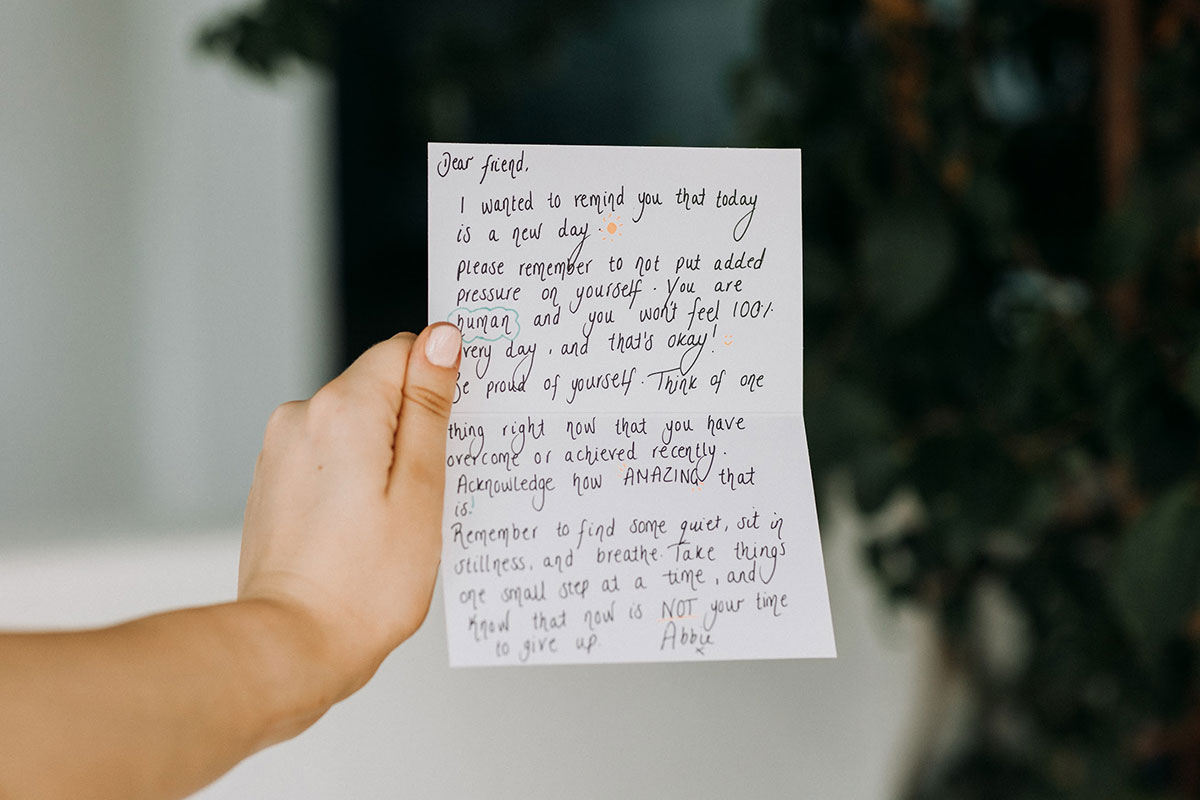 Dear friend,
I wanted to remind you that today
is a new day.
please remember to not put added
pressure on yourself. You are
human and you won't feel 100%
very day, and that's okay!
Be proud of yourself. Think of one
thing right now that you have
overcome or achieved recently.
Acknowledge how AMAZING that
is!
Remember to find some quiet, sit in
stillness, and breathe. Take things
one small step at a time, and
know that now is NOT your time
to give up. Abbie
x